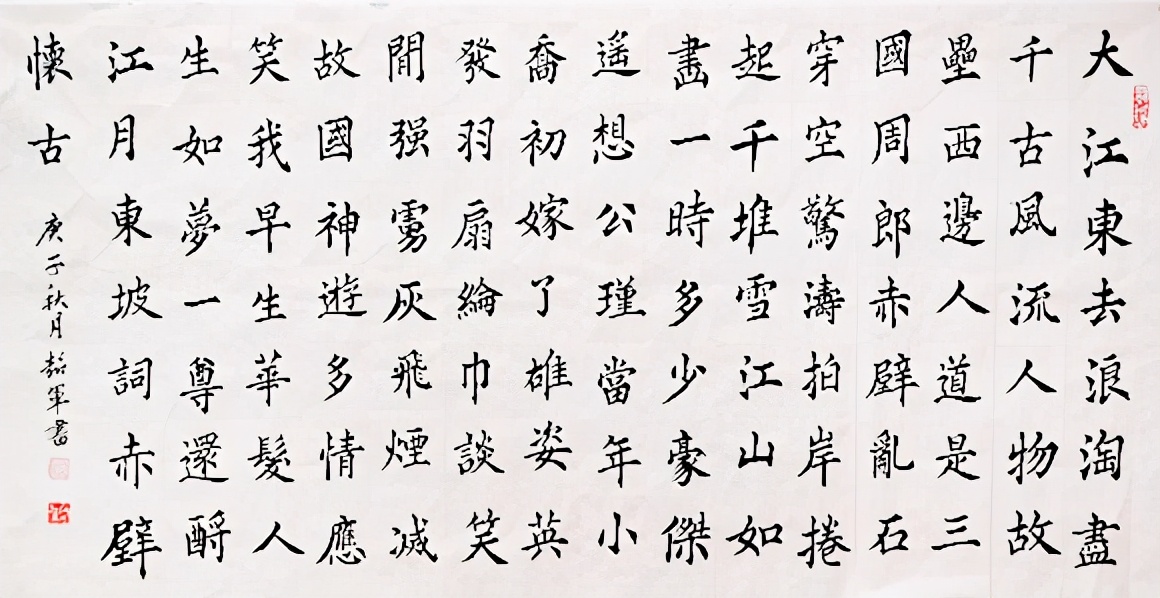 大江東去浪淘盡
千古風流人物故
壘西邊人道是三
國周郎赤壁亂石
穿空驚濤拍岸捲
起千堆雪江山如
畫一時多少豪傑
遙想公瑾當年小
喬初嫁了雄姿英
發羽扇綸巾談笑
間强虜灰飛煙滅
故國神遊多情應
笑我早生華髮人
生如夢一尊還酹
江月東坡詞赤壁
懷古
庚子秋月軍書